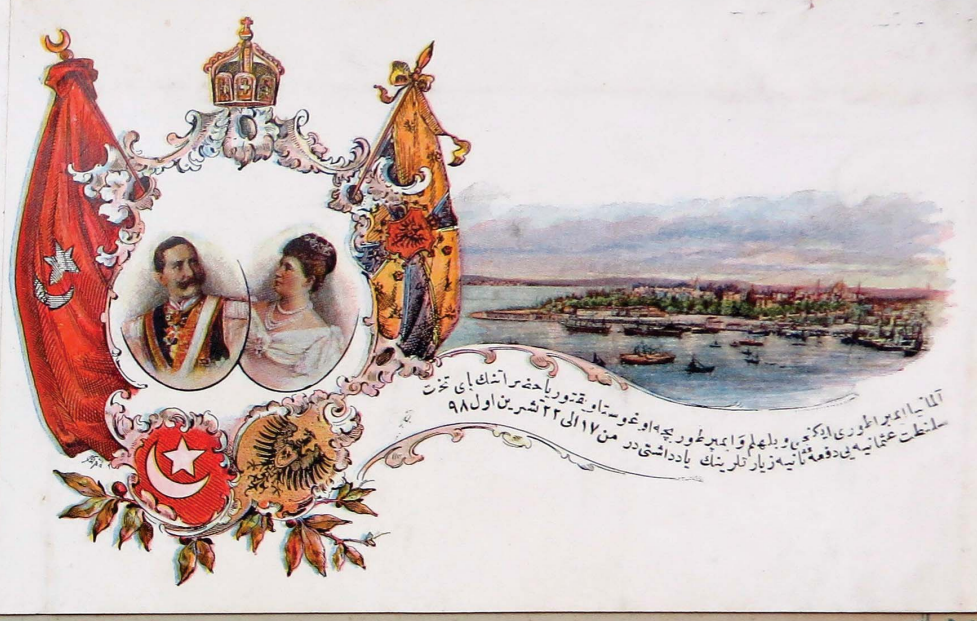 آلمانیا ایمپراطوری ایکنجی ویلهلم و ایمپراطوریچه اوغوستا ویقتوریا حضراتنك پای تخت
سلطنت عثمانیه یی دفعۀ ثانیه زیارتلرینك یادداشتی در من ١٧ الی ٢٢ تشرین اول ٩٨